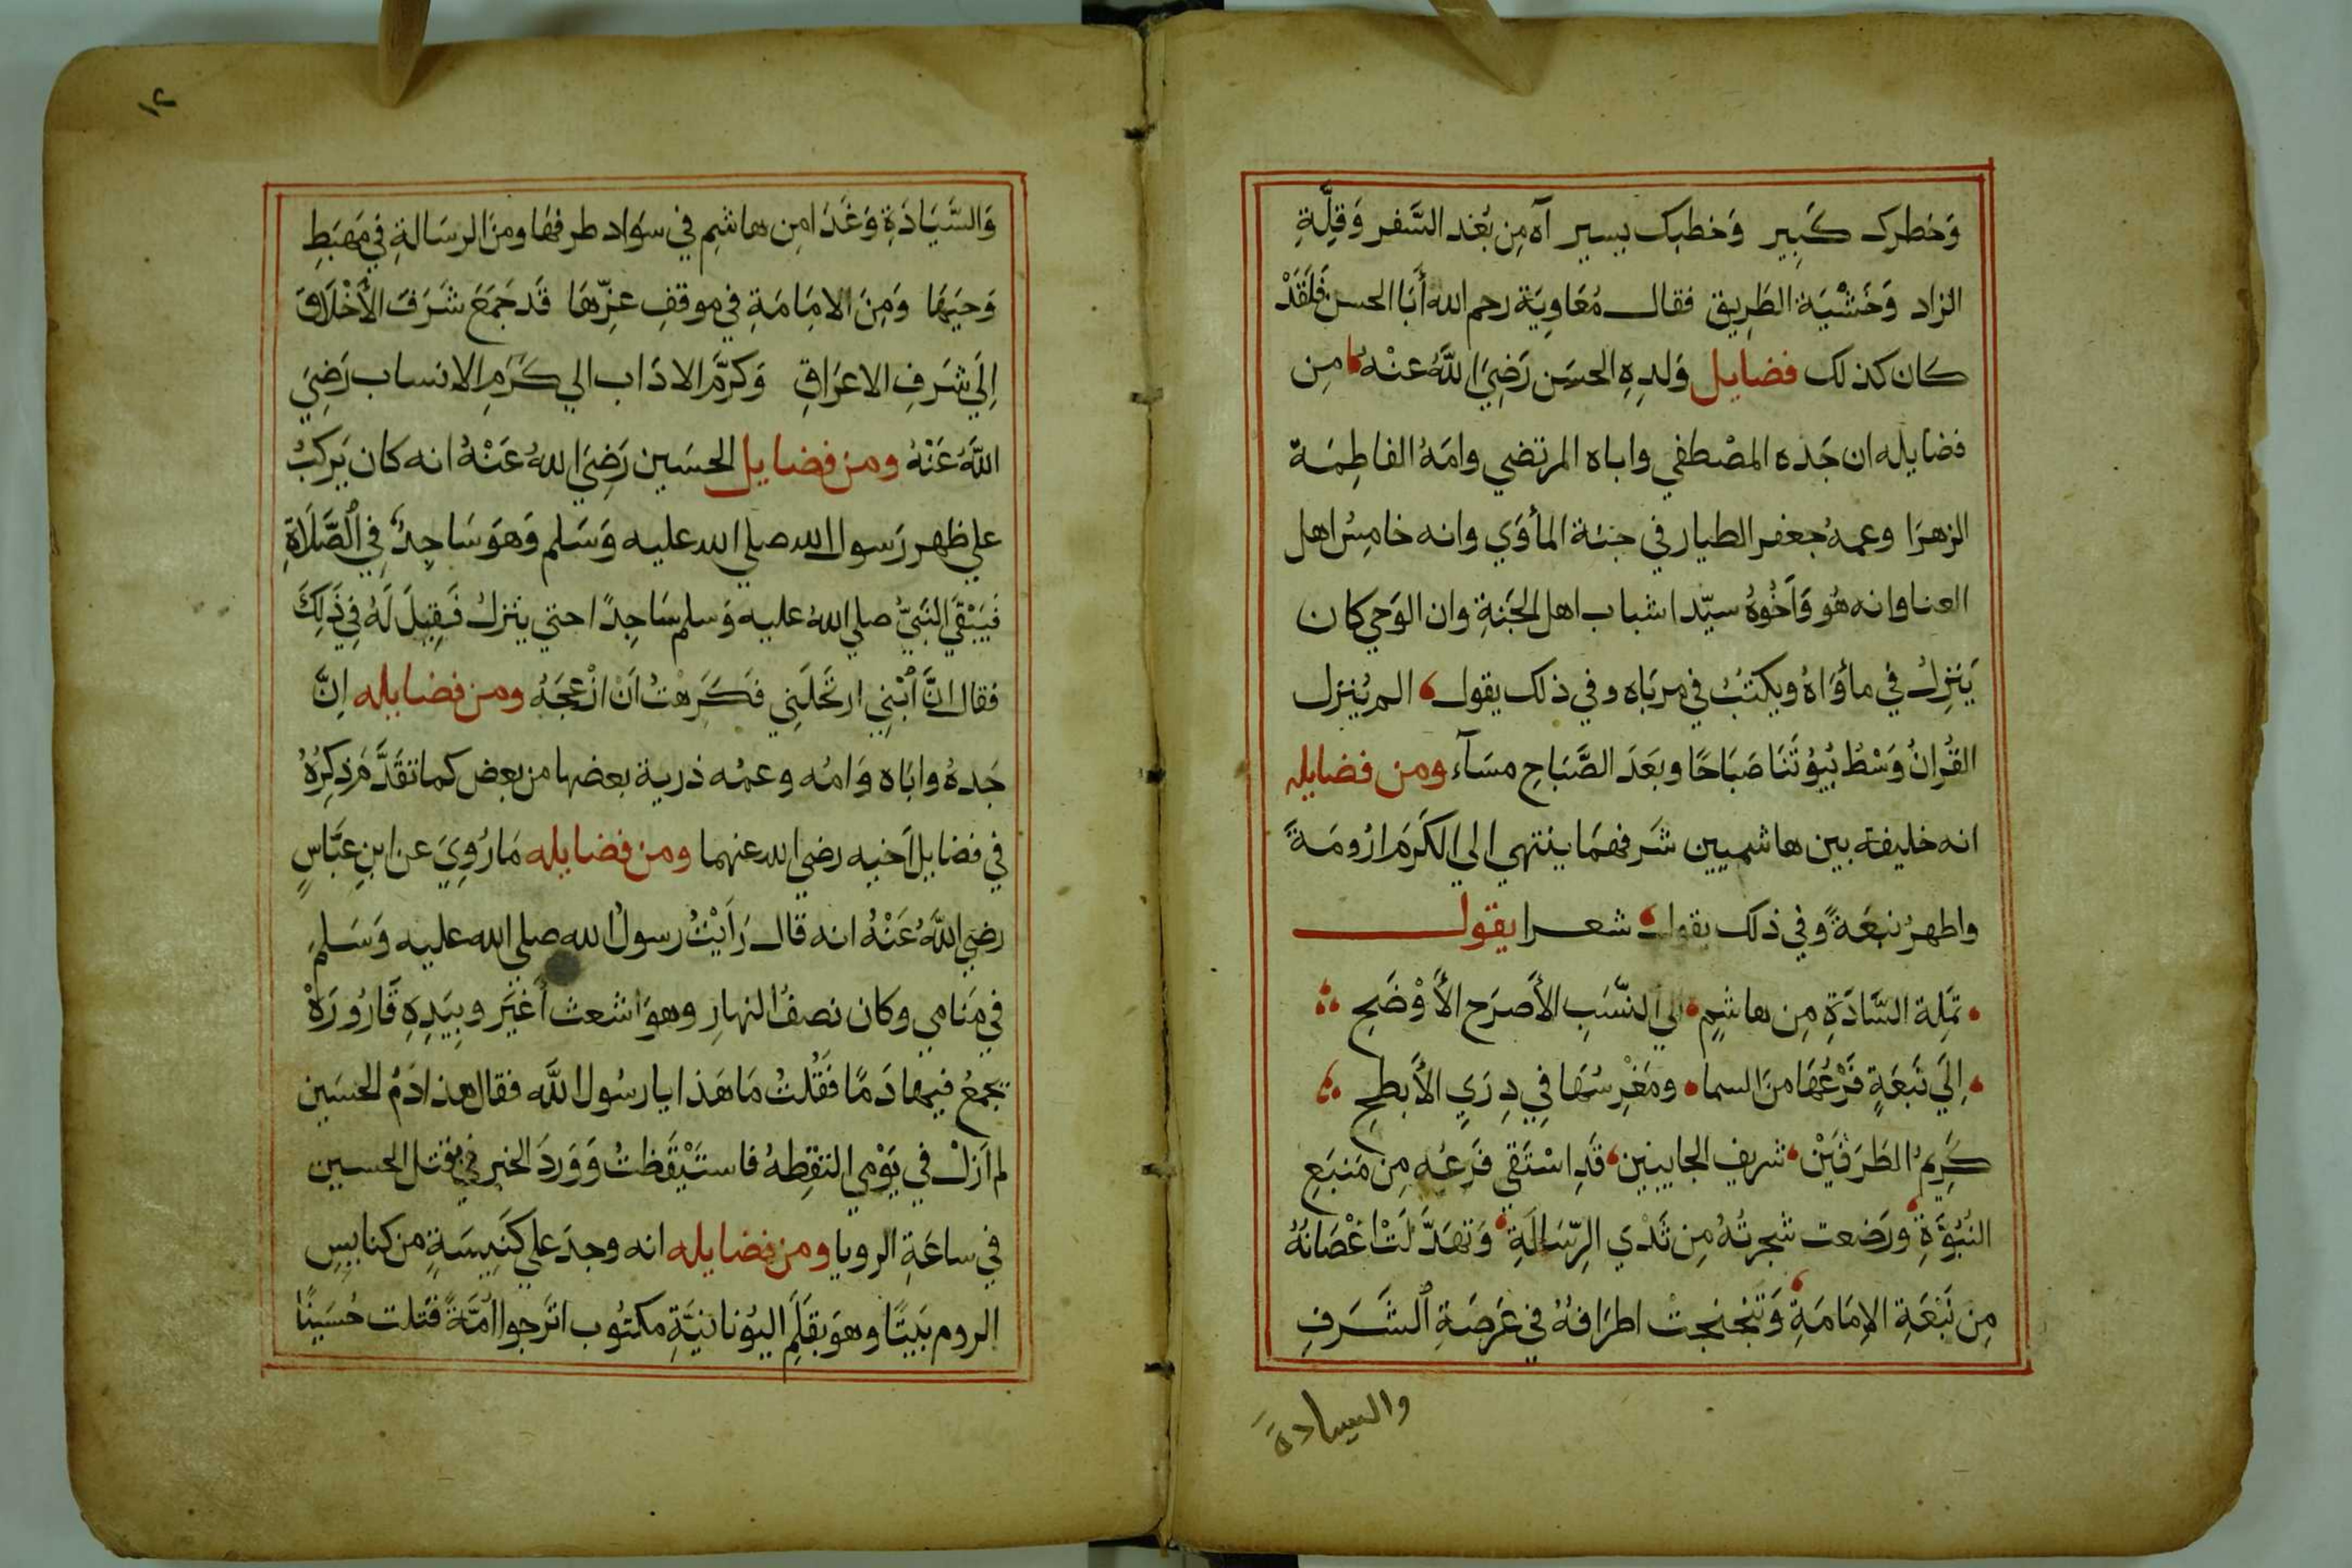 وَخطرك كَبِير وَخطبك يسير آه مِن بُعْد السَّفر وَقِلَّةِ
الزاد وَخَشْيَة الطَرِيق فقال مُعَاوِيَة رحم الله أَبَا الحسن فَلَقَدْ
كان كذلك فضايل وَلدِهِ الحسَن رَضِيَ اللَّهُ عنْهُ مِن
فضايله ان جَده المصْطفي واباه المرتضي وامَهُ الفاطِمَة
الزهرَا وعمهُ جعفر الطيار في جنة المأوَي وانه خامِسُ اهل
العبا وانه هُو وَاَخُوهُ سيّدا شباب اهل الجَنةِ وان الوَحي كان
يَنزِلُ في مأوَاهُ ويكتبُ في مربَاه وفي ذلك يقول الم يُنزل
القُرانُ وَسْطُ بُيُوْتَنَا صَبَاحًا وبَعَدَ الصَّبَاحِ مسَآء ومن فضايله
انه خليفة بين هاشميين شَرفهمَا ينتهي الي الكَرَمَ ارُومَةً
واطهرُ نبعَةً وفي ذلك يقول شعرا يقول
تمَلِة السَّادَةِ مِن هاشِمٍ الي النَّسَبِ الأَصرَح الأَوْضَحِ
اِلَي نَبَعَةٍ فَرْعُهَا منَ السما ومَغْرِسُهَا فِي دِرَيِ الأَبطحِ
كَرِيمُ الطَرَفَيْن شريف الجابينين قَدِ اسْتَقي فَرَعُه مِن مَنبَعِ
النُبُوَّةِ ورَضعت شجرتُهُ مِن ثَدْيِ الرِّسَالَةِ وَتهَدَّلَتْ اغْصَانُهُ
مِن نَبْعَةِ الاِمَامَةِ وَتَبَحْبَحَتْ اطرَافهُ في عَرصَةِ الشَرَفِ
والسيادة
١٢
وَالسَّيَادَةِ وَغَدَا مِن هاشِمٍ في سوَاد طرفهَا ومنَ الرسَالةِ في مَهبَطِ
وَحيَهَا وَمِنَ الامِامَةِ في موقفِ عِزّهَا قَد جَمَعَ شَرَفَ الأَخْلَاق
اِلَي شَرَفِ الاعرَاقِ وَكرَّمَ الادَاب الي كَرَمِ الانساب رَضِيَ
اللَّهُ عَنْهُ ومن فضايل الحسَين رَضِيَ اللهُ عَنْهُ انه كان يَركبُ
علي ظهر رَسول الله صلي الله عليه وَسَلم وَهوَ سَاجِدٌ فِي الصَّلَاةِ
فَيَبْقَي النَبَيُّ صلي اللهُ عليه وَسلم سَاجِدًا حتي ينزلُ فَقِيلَ لَهُ فِي ذَلِكَ
فقال انَّ ابْنِي ارتَحَلَنِي فَكَرَهْتُ اَنْ ازْعِجَهُ ومن فضايله اِنَّ
جَدهُ وابَاه وَامُه وعمُه ذرية بعضها من بعض كما تقَدَّمَ ذِكِرُهُ
في فضايل اَخيه رضي الله عنهما ومن فضايله مَا رُوِيَ عن ابنِ عَبَّاسٍ
رضِيَ اللَّهُ عَنْهُ انه قال رَاَيْتُ رسولُ الله صلي الله عليه وَسَلم
في مَنامي وكان نصفُ النهارِ وهوَ اشعث اَغبَر وبِيَدِهِ قَارُورَةْ
يجمعُ فيها دَمًا فَقُلتُ مَا هَذا يا رسُول اللَّه فقال هذا دَمُ الحسَين
لم اَزَلْ في يَوْمي التقِطهُ فاستَيْقَظتُ وَوَردَ الخبر في بقتل الحسين
في ساعَةِ الرويا ومن فضايله انه وجدَ علي كنَيِسَةٍ من كنايسِ
الروم بَيتًا وهوَ بقَلَمِ اليُونانيَّةِ مكتُوب اترَجوا اُمَّةً قَتلت حُسَينًا